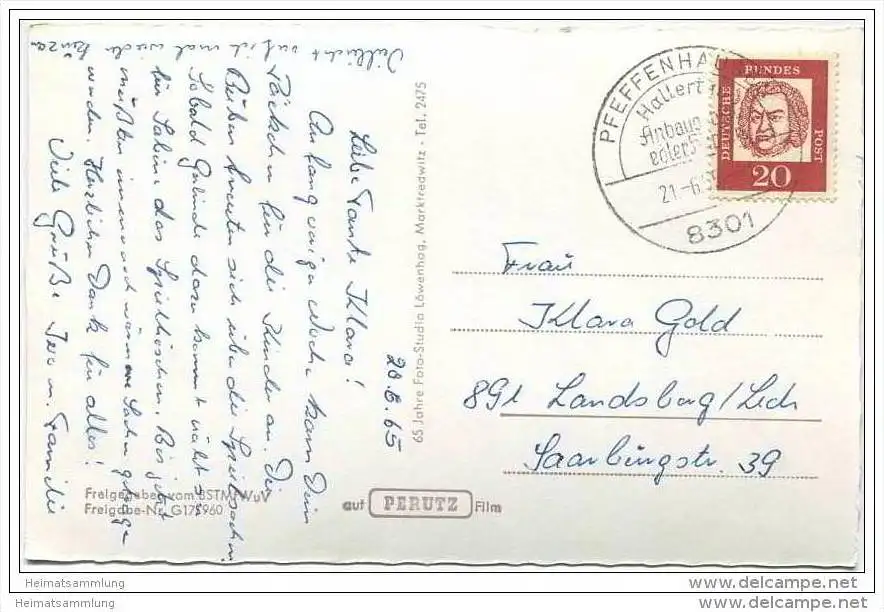 20.6.65
Liebe Tante Klara!
Anfang voriger Woche kam Dein
Päckchen für die Kinder an. Die
Buben freuten sich über die Spielsachen.
Sobald Gerlinde dazu kommt näht s
für Sabine das Spielhöschen. Bis jetzt
mußten immer noch wärmere Sachen getragen
werden. Herzlichen Dank für alles!
Viele Grüße u. Familie
Vielleicht mal wieder
65 Jahre Foto-Studio Löwenhag, Marktredwitz · Tel. 2475
Freigegeben vom BSTMfWuV
Freigabe-Nr. G175960
auf PERUTZ Film
PFEFFENHAUSEN
Hallert
Anbaug
edlers
21.-6.
8301
DEUTSCHE BUNDES POST
20
Frau
Klara Gold
891 Landsberg/Lech
Saarburgstr. 39
Heimatsammlung
Heimatsammlung
www.delcampe.net
www.delcampe.net